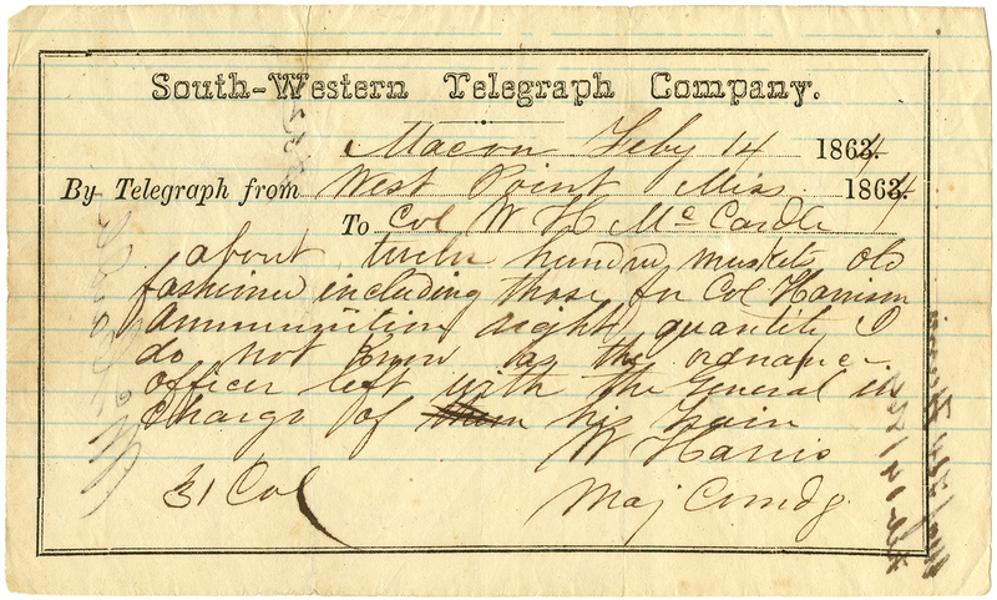 South-Western Telegraph Company.
Macon Feby 14 1863.4
By Telegraph from West Point Miss 1863.4
To Col W H McCardle
about twelve hundred muskets old
fashioned including those for Col Harrison
Ammunition quantity I
do not know as the ordnance
officer left with the General in
charge of them his train
W Harris
31 Col
Maj Comdg.